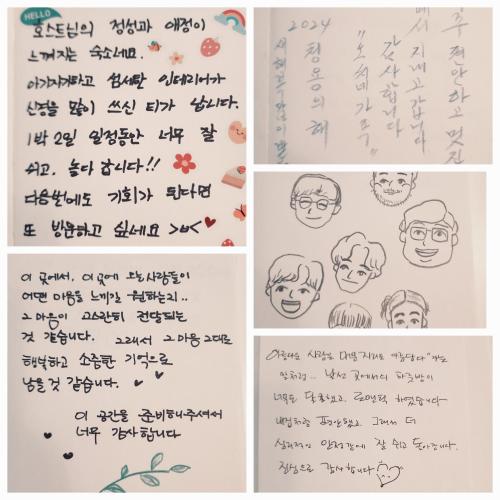 HELLO
호스트님의 정성과 애정이
느껴지는 숙소네요.
아기자기하고 섬세한 인테리어가
신경을 많이 쓰신 티가 납니다.
1박 2일 일정동안 너무 잘
쉬고, 놀다 갑니다!!
다음번에도 기회가 된다면
또 방문하고 싶네요 >ㅂ<
편안하고 멋진
지내고 갑니다
감사합니다
2024
청용의 해
이 곳에서, 이곳에 오는 사람들이
어떤 마음을 느끼길 원하는지..
그 마음이 고스란히 전달되는
것 같습니다. 그래서 그 마음 그대로
행복하고 소중한 기억으로
남을 것 같습니다.
이 공간을 준비해주셔서
너무 감사합니다
아름다운 사람은 머문 자리도 아름답다"
말처럼.. 낯선 곳에서의 하룻밤이
너무도 달콤했고, 로맨틱 하였답니다
내집처럼 편안했고 그래서 더
잘 쉬고 돌아갑니다.
진심으로 감사합니다